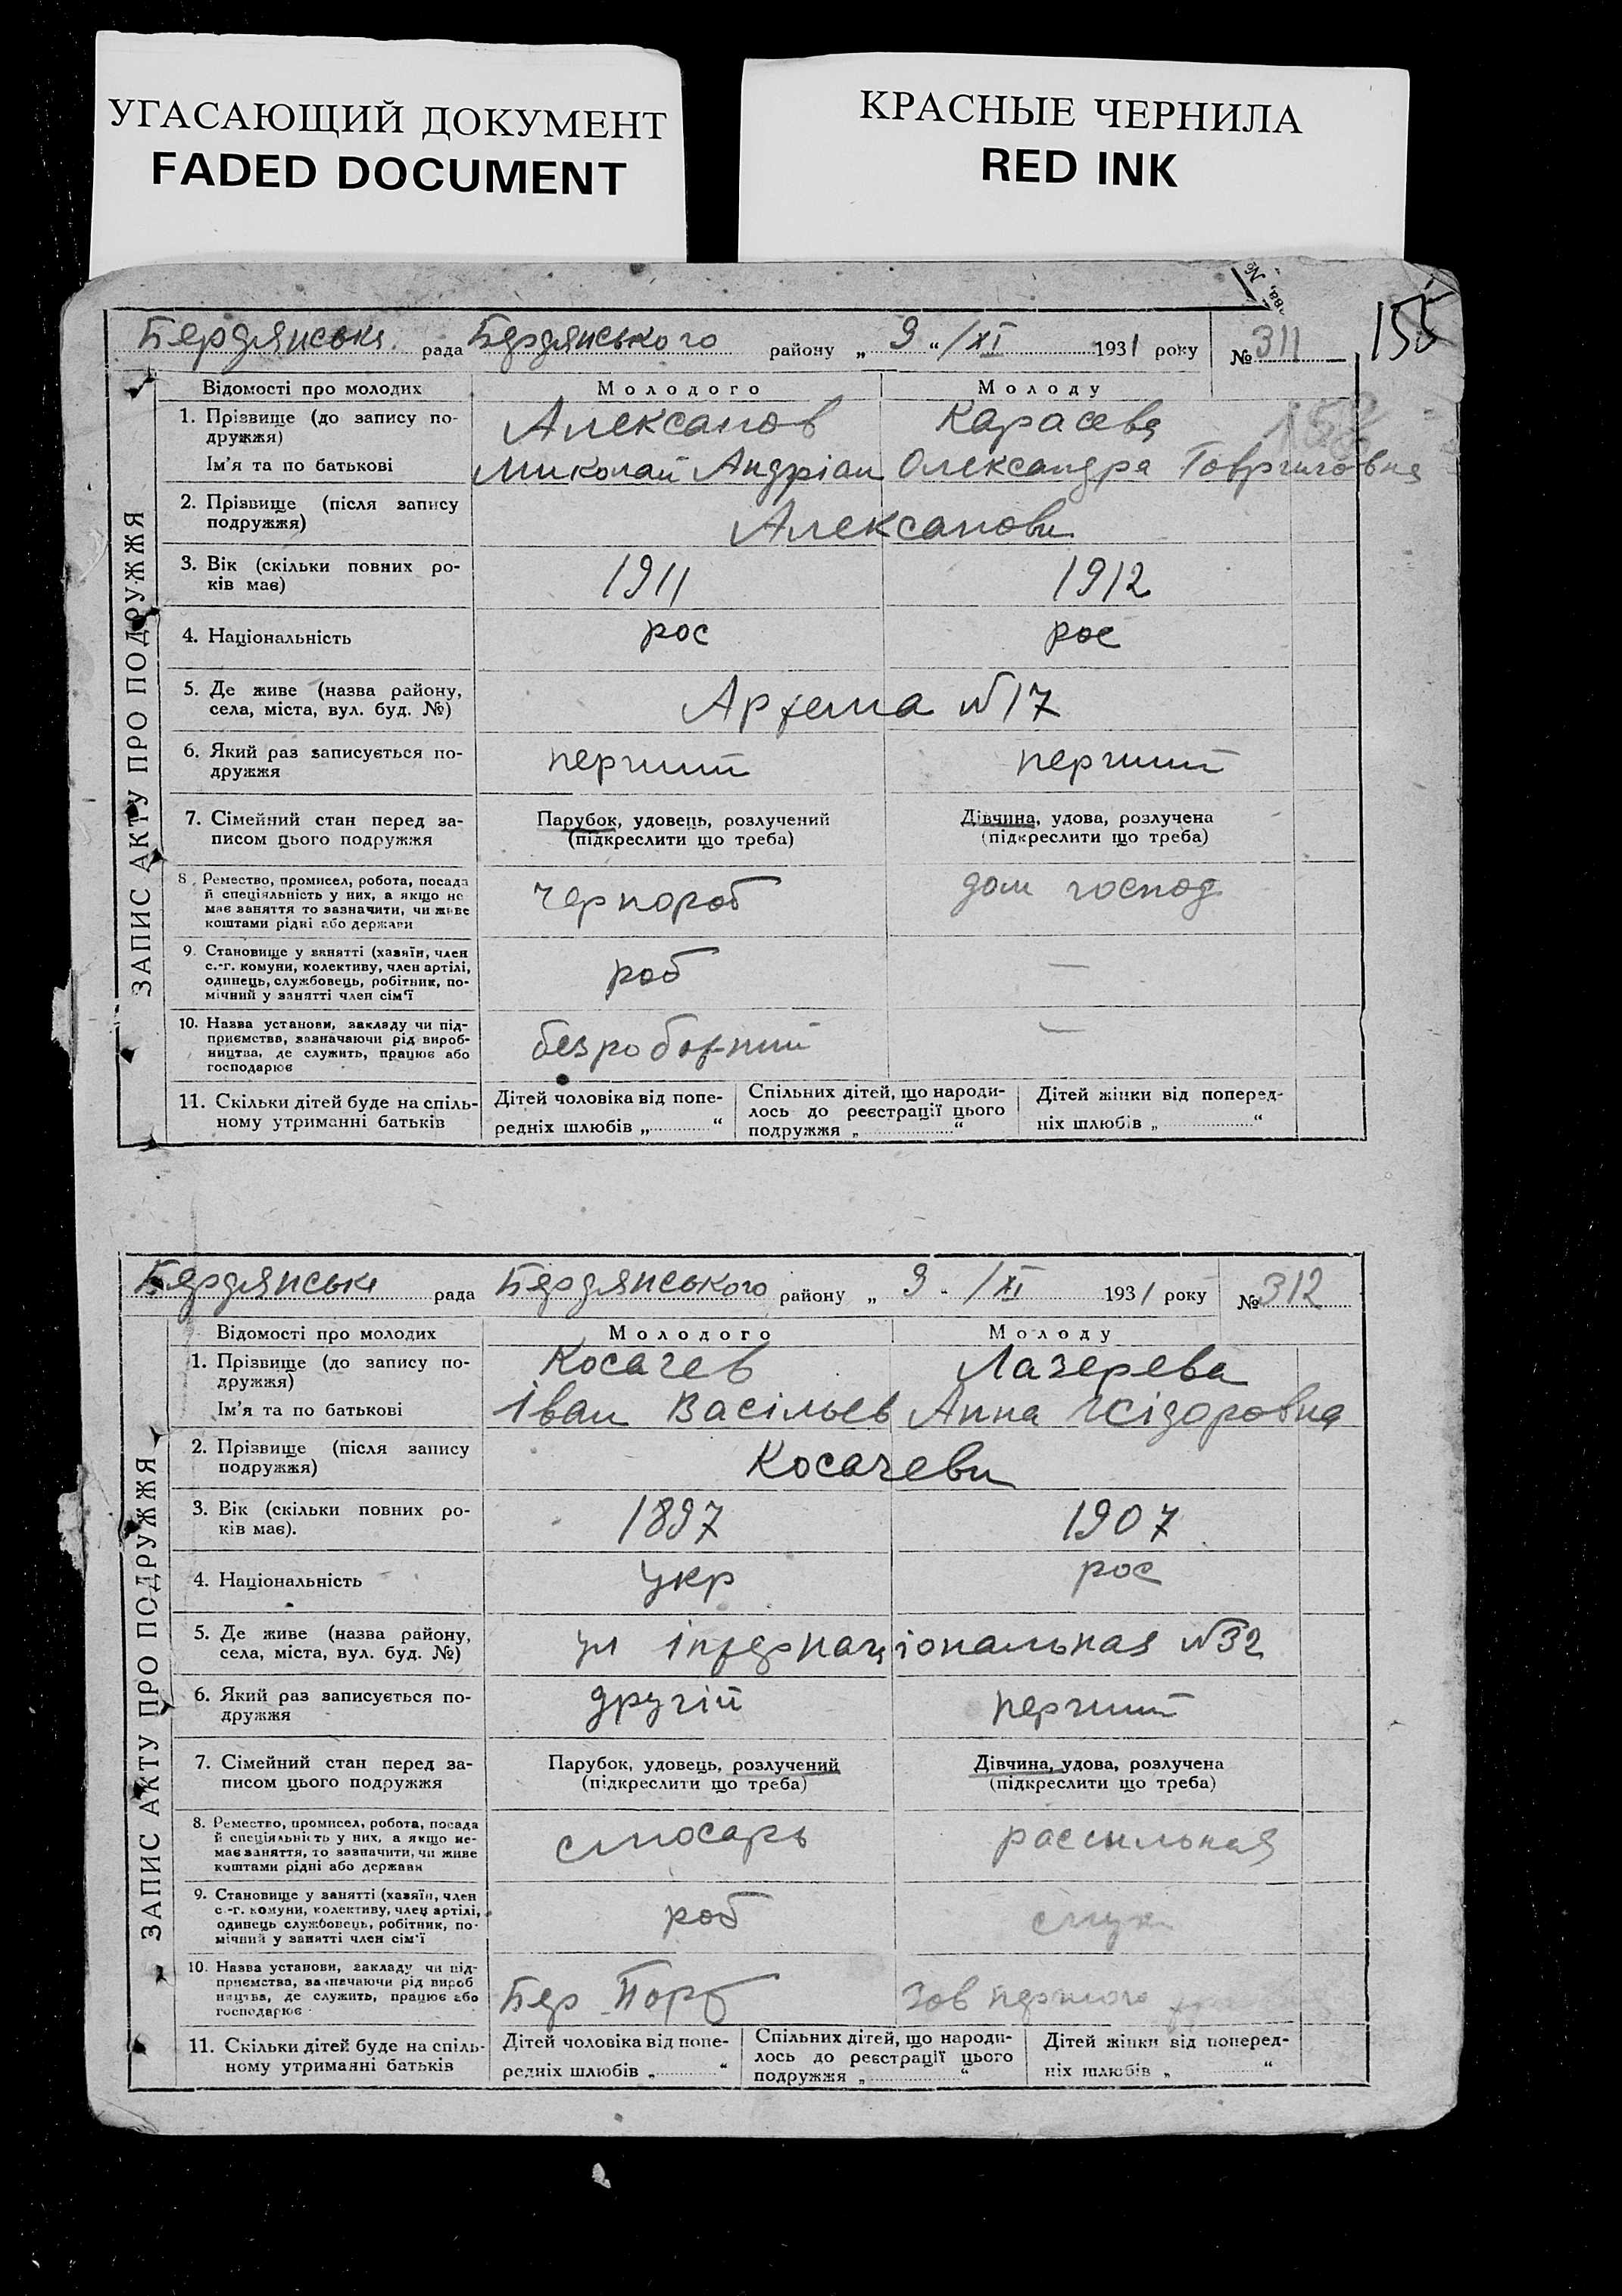 УГАСАЮЩИЙ ДОКУМЕНТ
FADED DOCUMENT
КРАСНЫЕ ЧЕРНИЛА
RED INK
155
Бердянська рада Бердянського району „ 9 “ /XI 1931 року № 311
ЗАПИС АКТУ ПРО ПОДРУЖЖЯ
Відомості про молодих Молодого Молоду
1. Прізвище (до запису по-
дружжя) Алексанов Карасева
Ім'я та по батькові Миколай Андріан Олександра Гаврииловна
2. Прізвище (після запису
подружжя) Алексанови
3. Вік (скільки повних ро-
ків має) 1911 1912
4. Національність рос рос
5. Де живе (назва району,
села, міста, вул. буд. №) Артема №17
6. Який раз записується по-
дружжя перший перший
7. Сімейний стан перед за-
писом цього подружжя
Парубок, удовець, розлучений
(підкреслити що треба)
Дівчина, удова, розлучена
(підкреслити що треба)
8. Ремество, промисел, робота, посада
й спеціяльність у них, а якщо не
має заняття то зазначити, чи живе
коштами рідні або держави
чернороб дом господ
9. Становище у занятті (хазяїн, член
с.-г. комуни, колективу, член артілі,
одинець, службовець, робітник, по-
мічний у занятті член сім'ї
роб —
10. Назва установи, закладу чи під-
приємства, зазначаючи рід вироб-
ництва, де служить, працює або
господарює
безроботний —
11. Скільки дітей буде на спіль-
ному утриманні батьків
Дітей чоловіка від попе-
редніх шлюбів „ “
Спільних дітей, що народи-
лось до реєстрації цього
подружжя „ “
Дітей жінки від поперед-
ніх шлюбів „ “
Бердянська рада Бердянського району „ 9 - /XI 1931 року № 312
ЗАПИС АКТУ ПРО ПОДРУЖЖЯ
Відомості про молодих Молодого Молоду
1. Прізвище (до запису по-
дружжя) Косачев Лазерева
Ім'я та по батькові Іван Васільев Анна Ісідоровна
2. Прізвище (після запису
подружжя) Косачеви
3. Вік (скільки повних ро-
ків має). 1897 1907
4. Національність укр рос
5. Де живе (назва району,
села, міста, вул. буд. №) ул інтернаціональная №32
6. Який раз записується по-
дружжя другій перший
7. Сімейний стан перед за-
писом цього подружжя
Парубок, удовець, розлучений
(підкреслити що треба)
Дівчина, удова, розлучена
(підкреслити що треба)
8. Ремество, промисел, робота, посада
й спеціяльність у них, а якщо не-
має заняття, то зазначити, чи живе
коштами рідні або держави
слюсарь рассильная
9. Становище у занятті (хазяїн, член
с.-г. комуни, колективу, член артілі,
одинець службовець, робітник, по-
мічний у занятті член сім'ї
роб служ
10. Назва установи, закладу чи під-
приємства, зазначаючи рід вироб
ництва, де служить, працює або
господарює
Бер Порт Зав першого
11. Скільки дітей буде на спіль-
ному утриманні батьків
Дітей чоловіка від попе-
редніх шлюбів „ “
Спільних дітей, що народи-
лось до реєстрації цього
подружжя „ “
Дітей жінки від поперед-
ніх шлюбів „ “